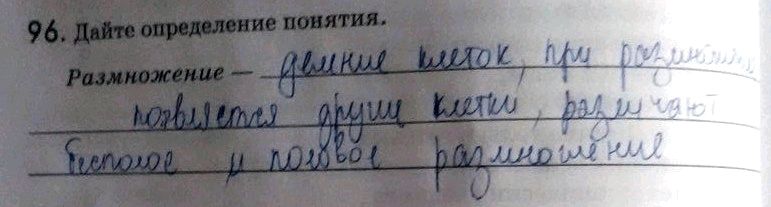 96. Дайте определение понятия.
Размножение — деление клеток, при размножении
появляется другие клетки, различают
бесполое и половое размножение